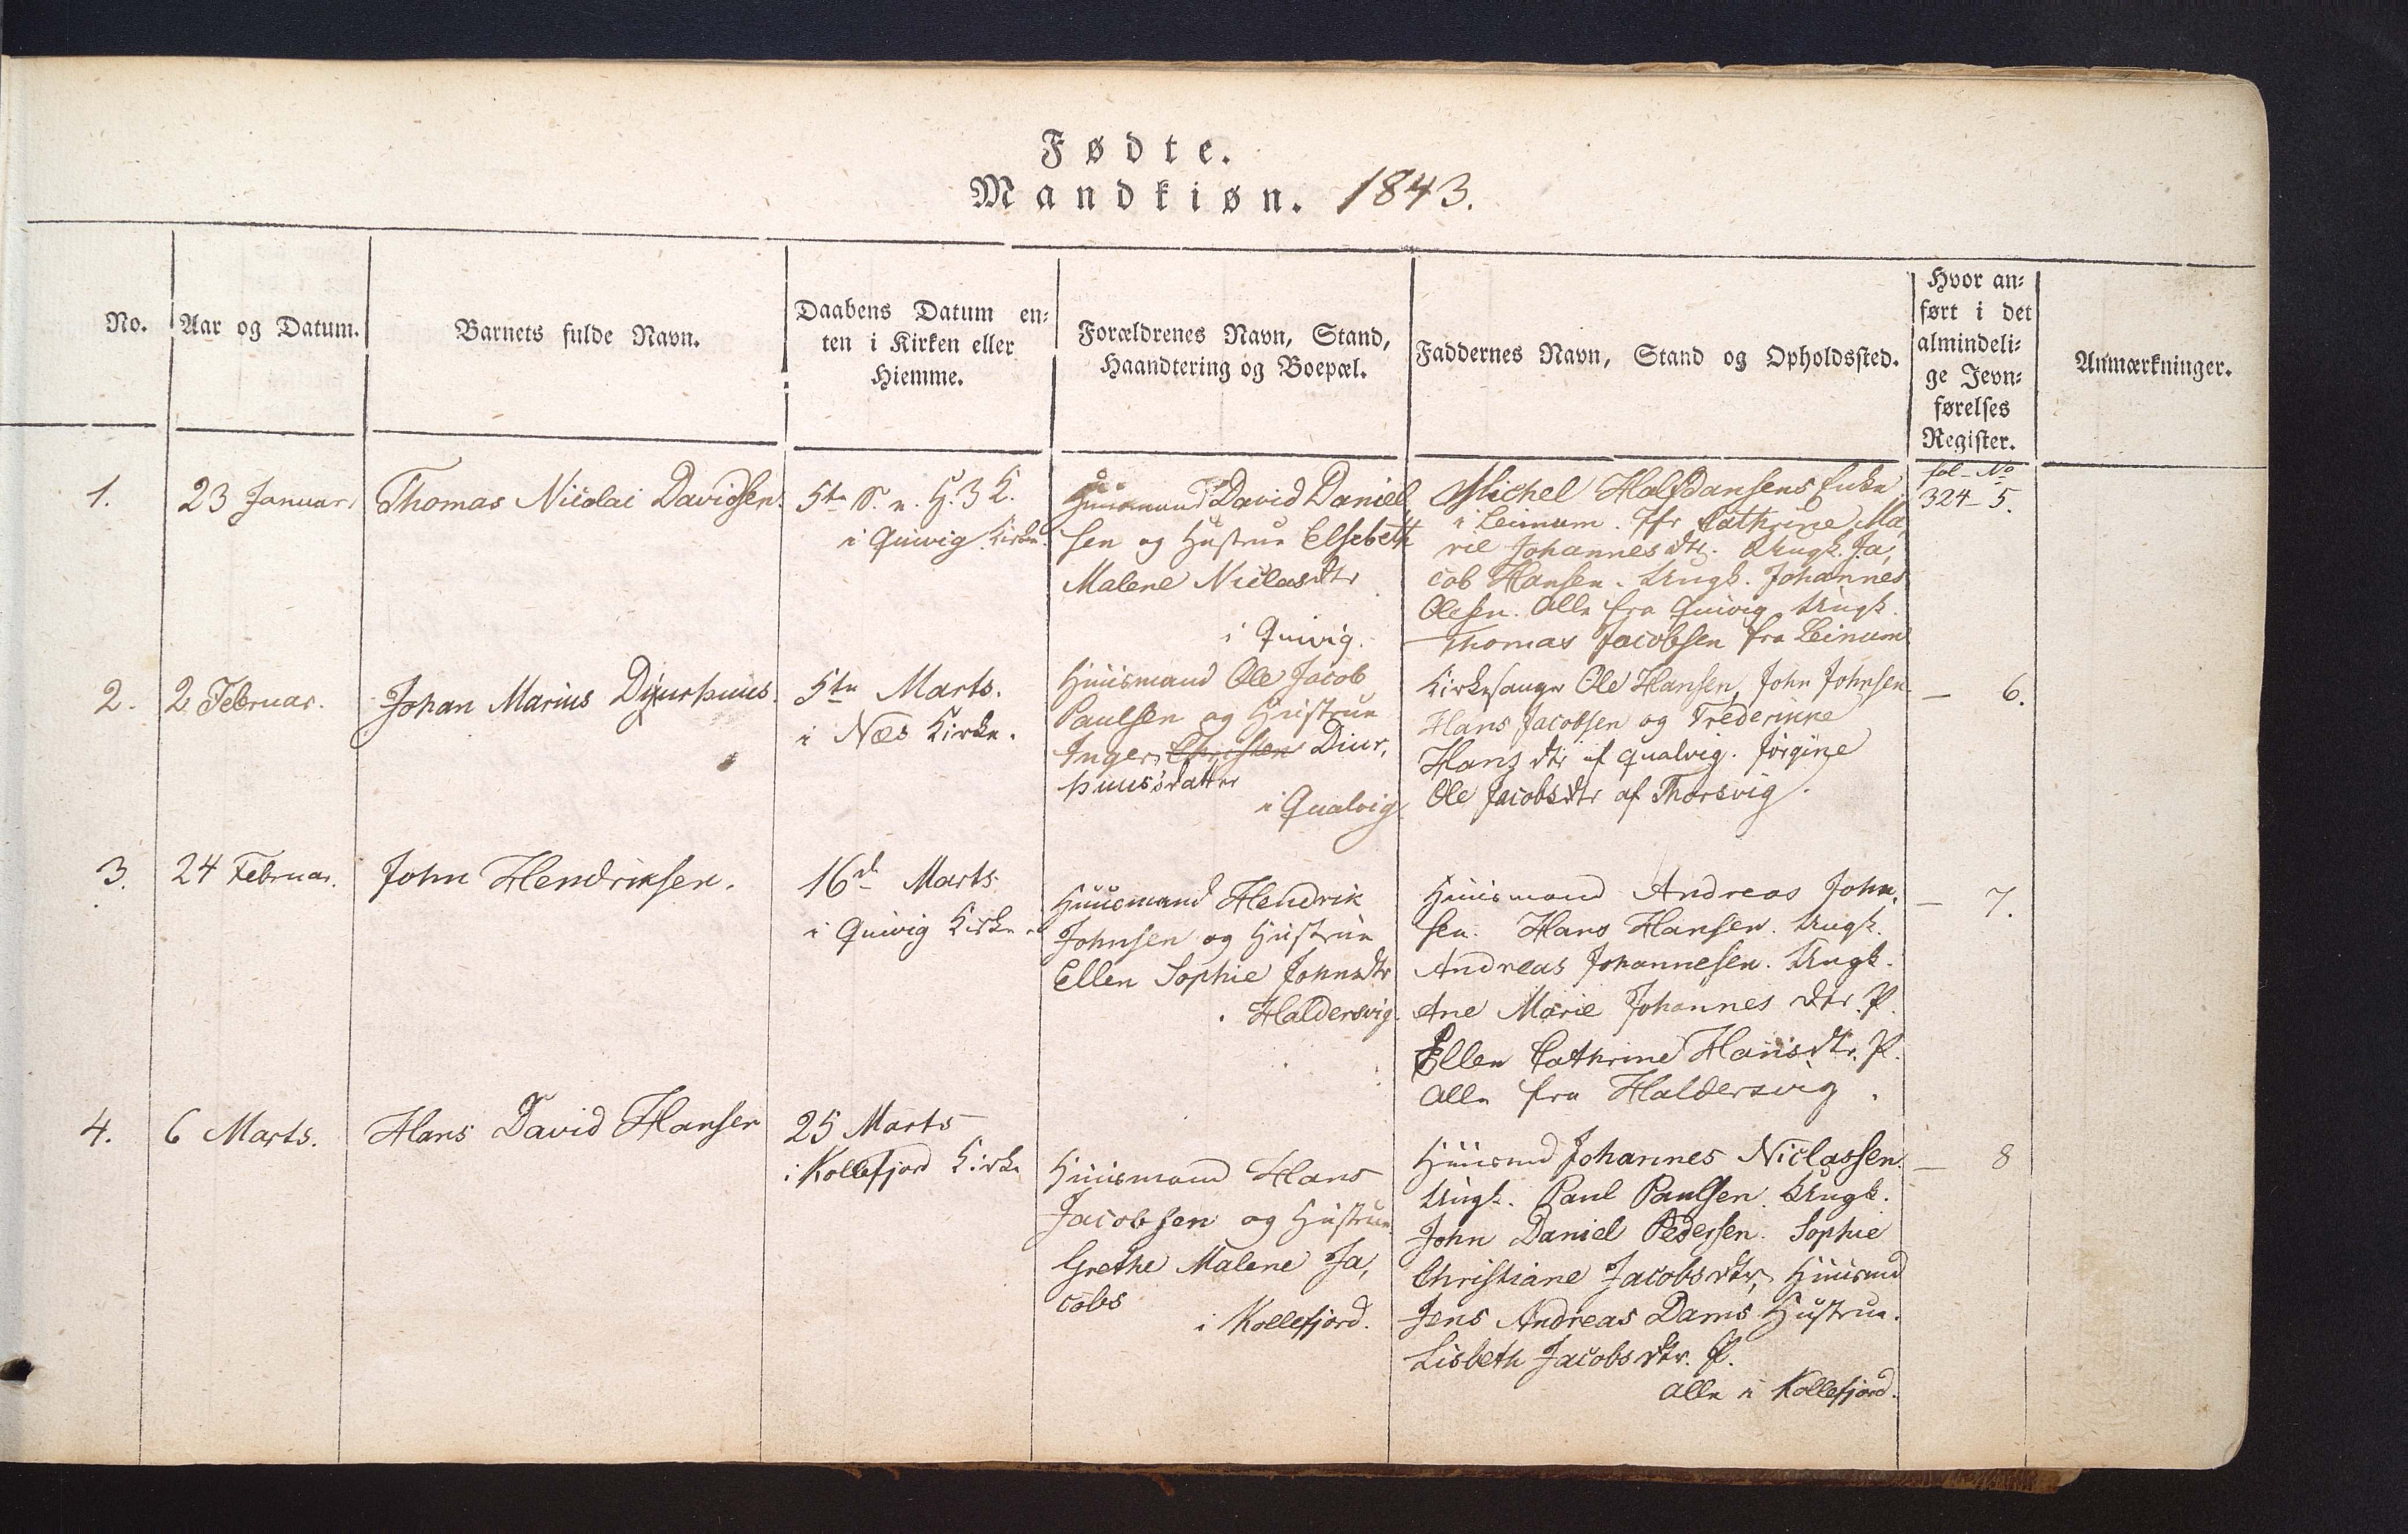 Fødte.
Mandkiøn. 1843.
No.
Aar og Datum.
Barnets fulde Navn.
Daabens Datum en-
ten i Kirken eller
Hiemme.
Forældrenes Navn, Stand,
Haandtering og Boepæl.
Faddernes Navn, Stand og Opholdssted.
Hvor an-
ført i det
almindeli-
ge Jevn-
førelses
Register.
Anmærkninger.
1.
23 Januar
Thomas Nicolai Davidsen.
5te S. e. H. 3 K.
i Quivig Kirke.
Huusmand David Daniel
sen og Hustrue Elsebeth
Malene Niclasdtr
i Quivig.
Michel Halfdansens Enke
i Leinum. Jfr Cathrine Ma,
rie Johannesdtr. Ungk. Ja,
cob Hansen. Ungk. Johannes
Olesen. Alle fra Quivig. Ungk.
Thomas Jacobsen fra Leinum
fol - No
324 - 5.
2.
2 Februar.
Johan Marius Djurhuus.
5te Marts.
i Næs Kirke.
Huusmand Ole Jacob
Paulsen og Hustrue
Inger Diur,
huusdatter
i Qualvig
Kirkesanger Ole Hansen, John Johnsen
Hans Jacobsen og Frederikke
Hans dtr af Qualvig. Jørgine
Ole Jacobsdtr af Thorsvig.
— 6.
3.
24 Februar.
John Hendriksen.
16d Marts
i Quivig Kirke.
Huusmand Hendrik
Johnsen og Hustrue
Ellen Sophie Johnsdtr
Haldersvig.
Huusmand Andreas John,
sen. Hans Hansen. Ungk.
Andreas Johannesen. Ungk.
Ane Marie Johannes dtr. P.
Ellen Cathrine Hansdtr. P.
Alle fra Haldersvig.
— 7.
4.
6 Marts.
Hans David Hansen
25 Marts
i Kollefjord Kirke
Huusmand Hans
Jacobsen og Hustrue
Grethe Malene Ja,
cobs
i Kollefjord.
Huusmd Johannes Niclassen.
Ungk. Paul Paulsen. Ungk.
John Daniel Pedersen. Sophie
Christiane Jacobsdtr, Huusmd
Jens Andreas Dams Hustrue.
Lisbeth Jacobsdtr. P.
Alle i Kollefjord.
— 8